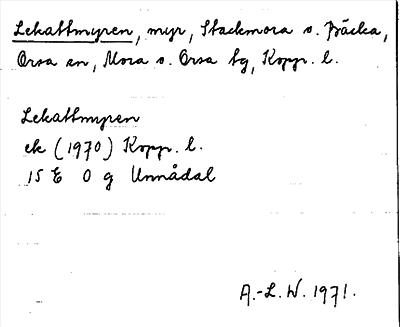 Lekattmyren, myr, Stackmora o. Bäcka,
Orsa sn, Mora o. Orsa tg, Kopp. l.
Lekattmyren
ek (1970) Kopp. l.
15 E 0 g Unnådal
A.-L. W. 1971.